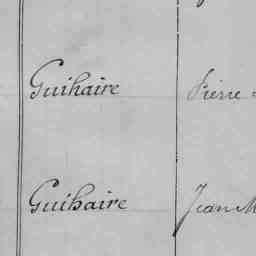 Guihaire Pierre
Guihaire Jean M